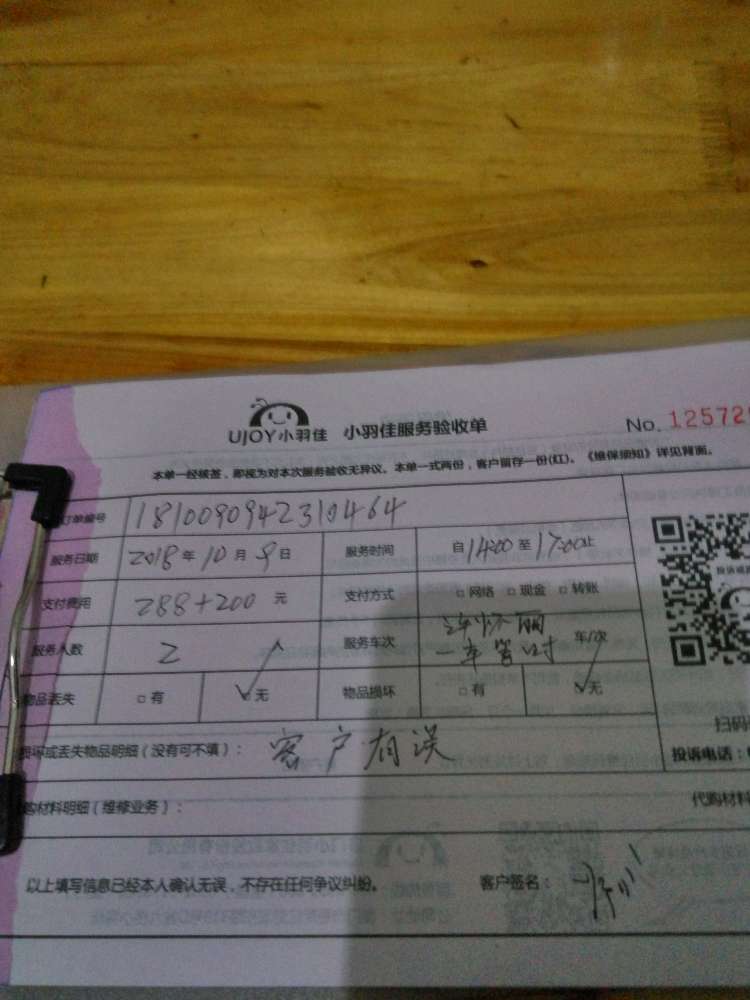 UJOY小羽佳 小羽佳服务验收单 No. 12572
本单一经核签，即视为对本次服务验收无异议。本单一式两份，客户留存一份(红)。《维保须知》详见背面。
订单编号 1810090942310464
服务日期 2018年10月9日 服务时间 自14:00至17:00止
支付费用 288+200 元 支付方式 □网络 □现金 □转账
服务人数 2人 服务车次 一车 车/次
物品丢失 □有 □无 物品损坏 □有 □无
损坏或丢失物品明细（没有可不填）： 客户有误
扫码
投诉电话：
购材料明细（维修业务）： 代购材料
以上填写信息已经本人确认无误，不存在任何争议纠纷。 客户签名：